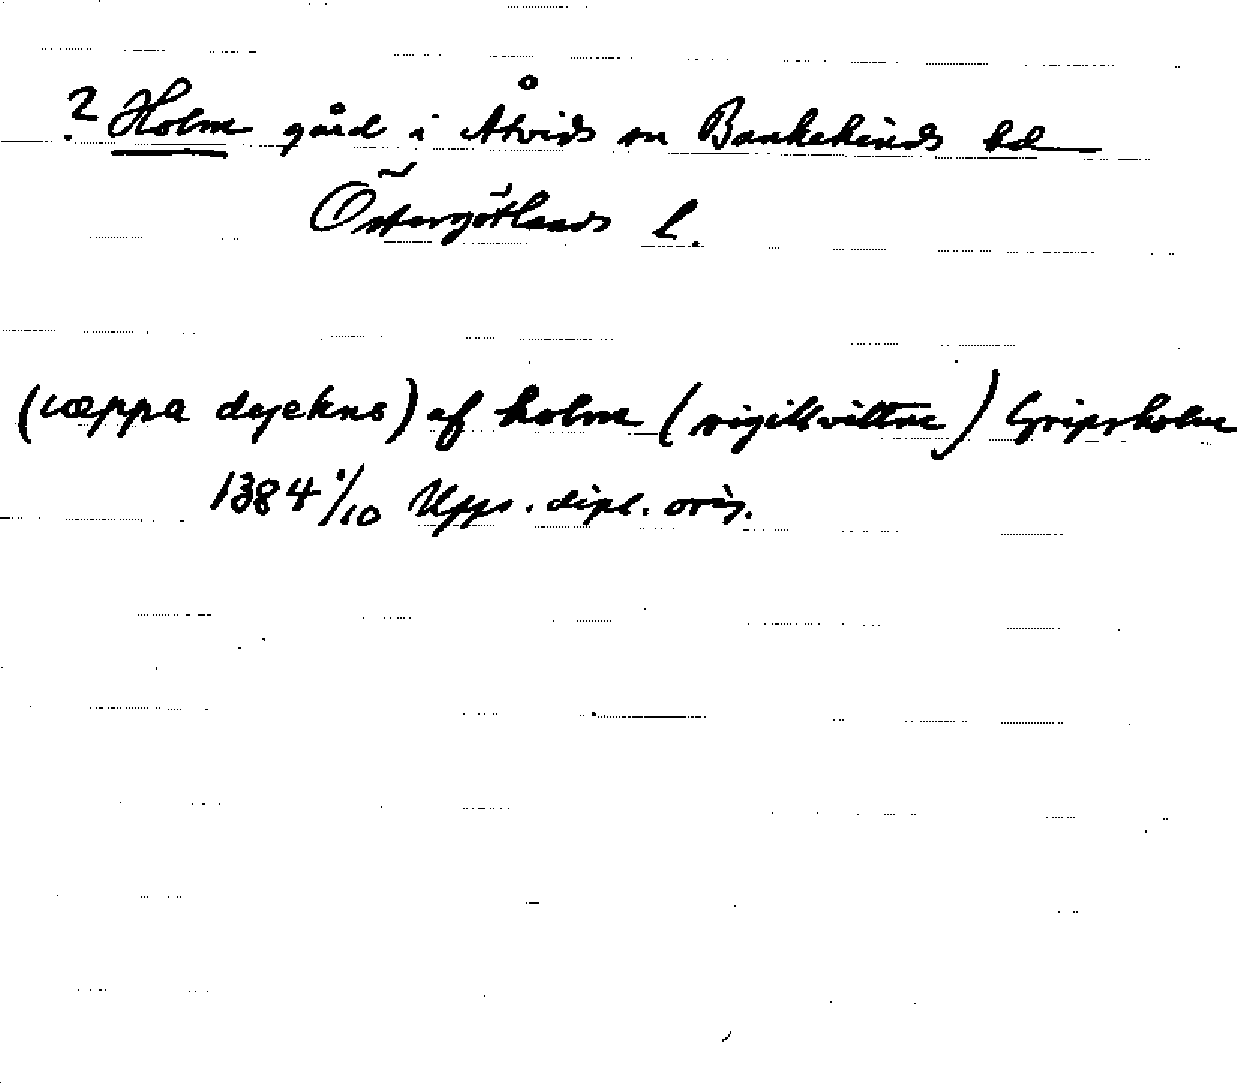 ? Holm gård i Åtvids sn Bankekinds hd
Östergötlands l.
(iæppa dyekns) af holm (sigillvittne) Gripsholm
1384 1/10 Upps. dipl. orig.